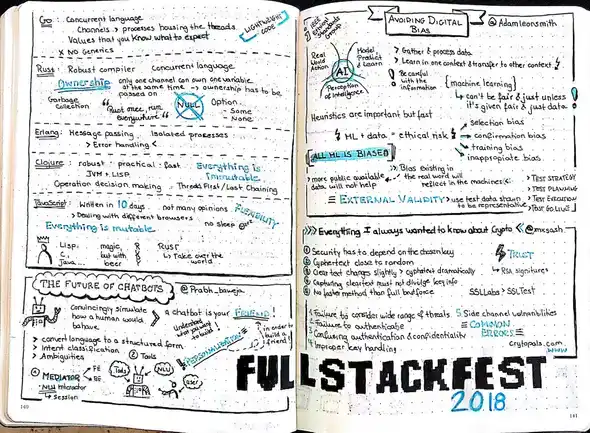 Go: Concurrent language
Channels > processes housing the threads
Values that you know what to expect
x No Generics
LIGHTWEIGHT CODE
Rust: Robust compiler Concurrent language
Ownership only one channel can own one variable
at the same time → ownership has to be
passed on
Garbage Collection
"Rust once, run everywhere"
NULL
Option
- Some
- None
Erlang: Message passing. Isolated processes
> Error handling <
Clojure: robust · practical · fast
Everything is immutable
JVM + LISP
Operation decision making · Thread First/Last Chaining
JavaScript: Written in 10 days · not many opinions
FLEXIBILITY
> Dealing with different browsers
no sleep
Everything is mutable
Lisp, magic, R Rust
C, but with R ↳ Take over the
Java... beer world
THE FUTURE OF CHATBOTS
@Prabh_baweja
Convincingly simulate
how a human would
behave
a chatbot is your FRIEND
> convert language to a structured form
> Intent classification
> Ambiguities
PERSONALISATION
in order to
build a
friend!
2 Tools
MEDIATOR
FE
BE
Tools
NLU
NLU Interactor
→ Session
user
140
AVOIDING DIGITAL BIAS
@Adamleonsmith
IEEE
Real World Action
Model, Predict & Learn
AI
Perception of Intelligence
> Gather & process data
> Learn in one context & transfer to other context
Be careful with the information
{machine learning}
↳ can't be fair & just unless
it's given fair & just data
Heuristics are important but fast
ML + data = ethical risk
→ selection bias
→ confirmation bias
→ training bias
→ inappropiate bias
ALL ML IS BIASED
> more public available
data will not help
Bias existing in
the real word will
reflect in the machines
≡ EXTERNAL VALIDITY: use test data shown
to be representative
> TEST STRATEGY
> TEST PLANNING
> TEST EXECUTION
> TEST GO LIVE
>>> Everything I always wanted to know about Crypto
@mxsash
Security has to depend on the chosen key
Cyphertext close to random
Clear text changes slightly > cyphertext dramatically
Capturing cleartext must not divulge key info
No faster method than full bruteforce
TRUST
↳ RSA signatures
SSLLabs > SSLTest
1 Failure to consider wide range of threats
2 Failure to authenticate
3 Confusing authentication & confidentiality
4 Improper key handling
5 Side channel vulnerabilities
≡ COMMON ERRORS ≡
cryptopals.com
www
FULLSTACKFEST
2018
141